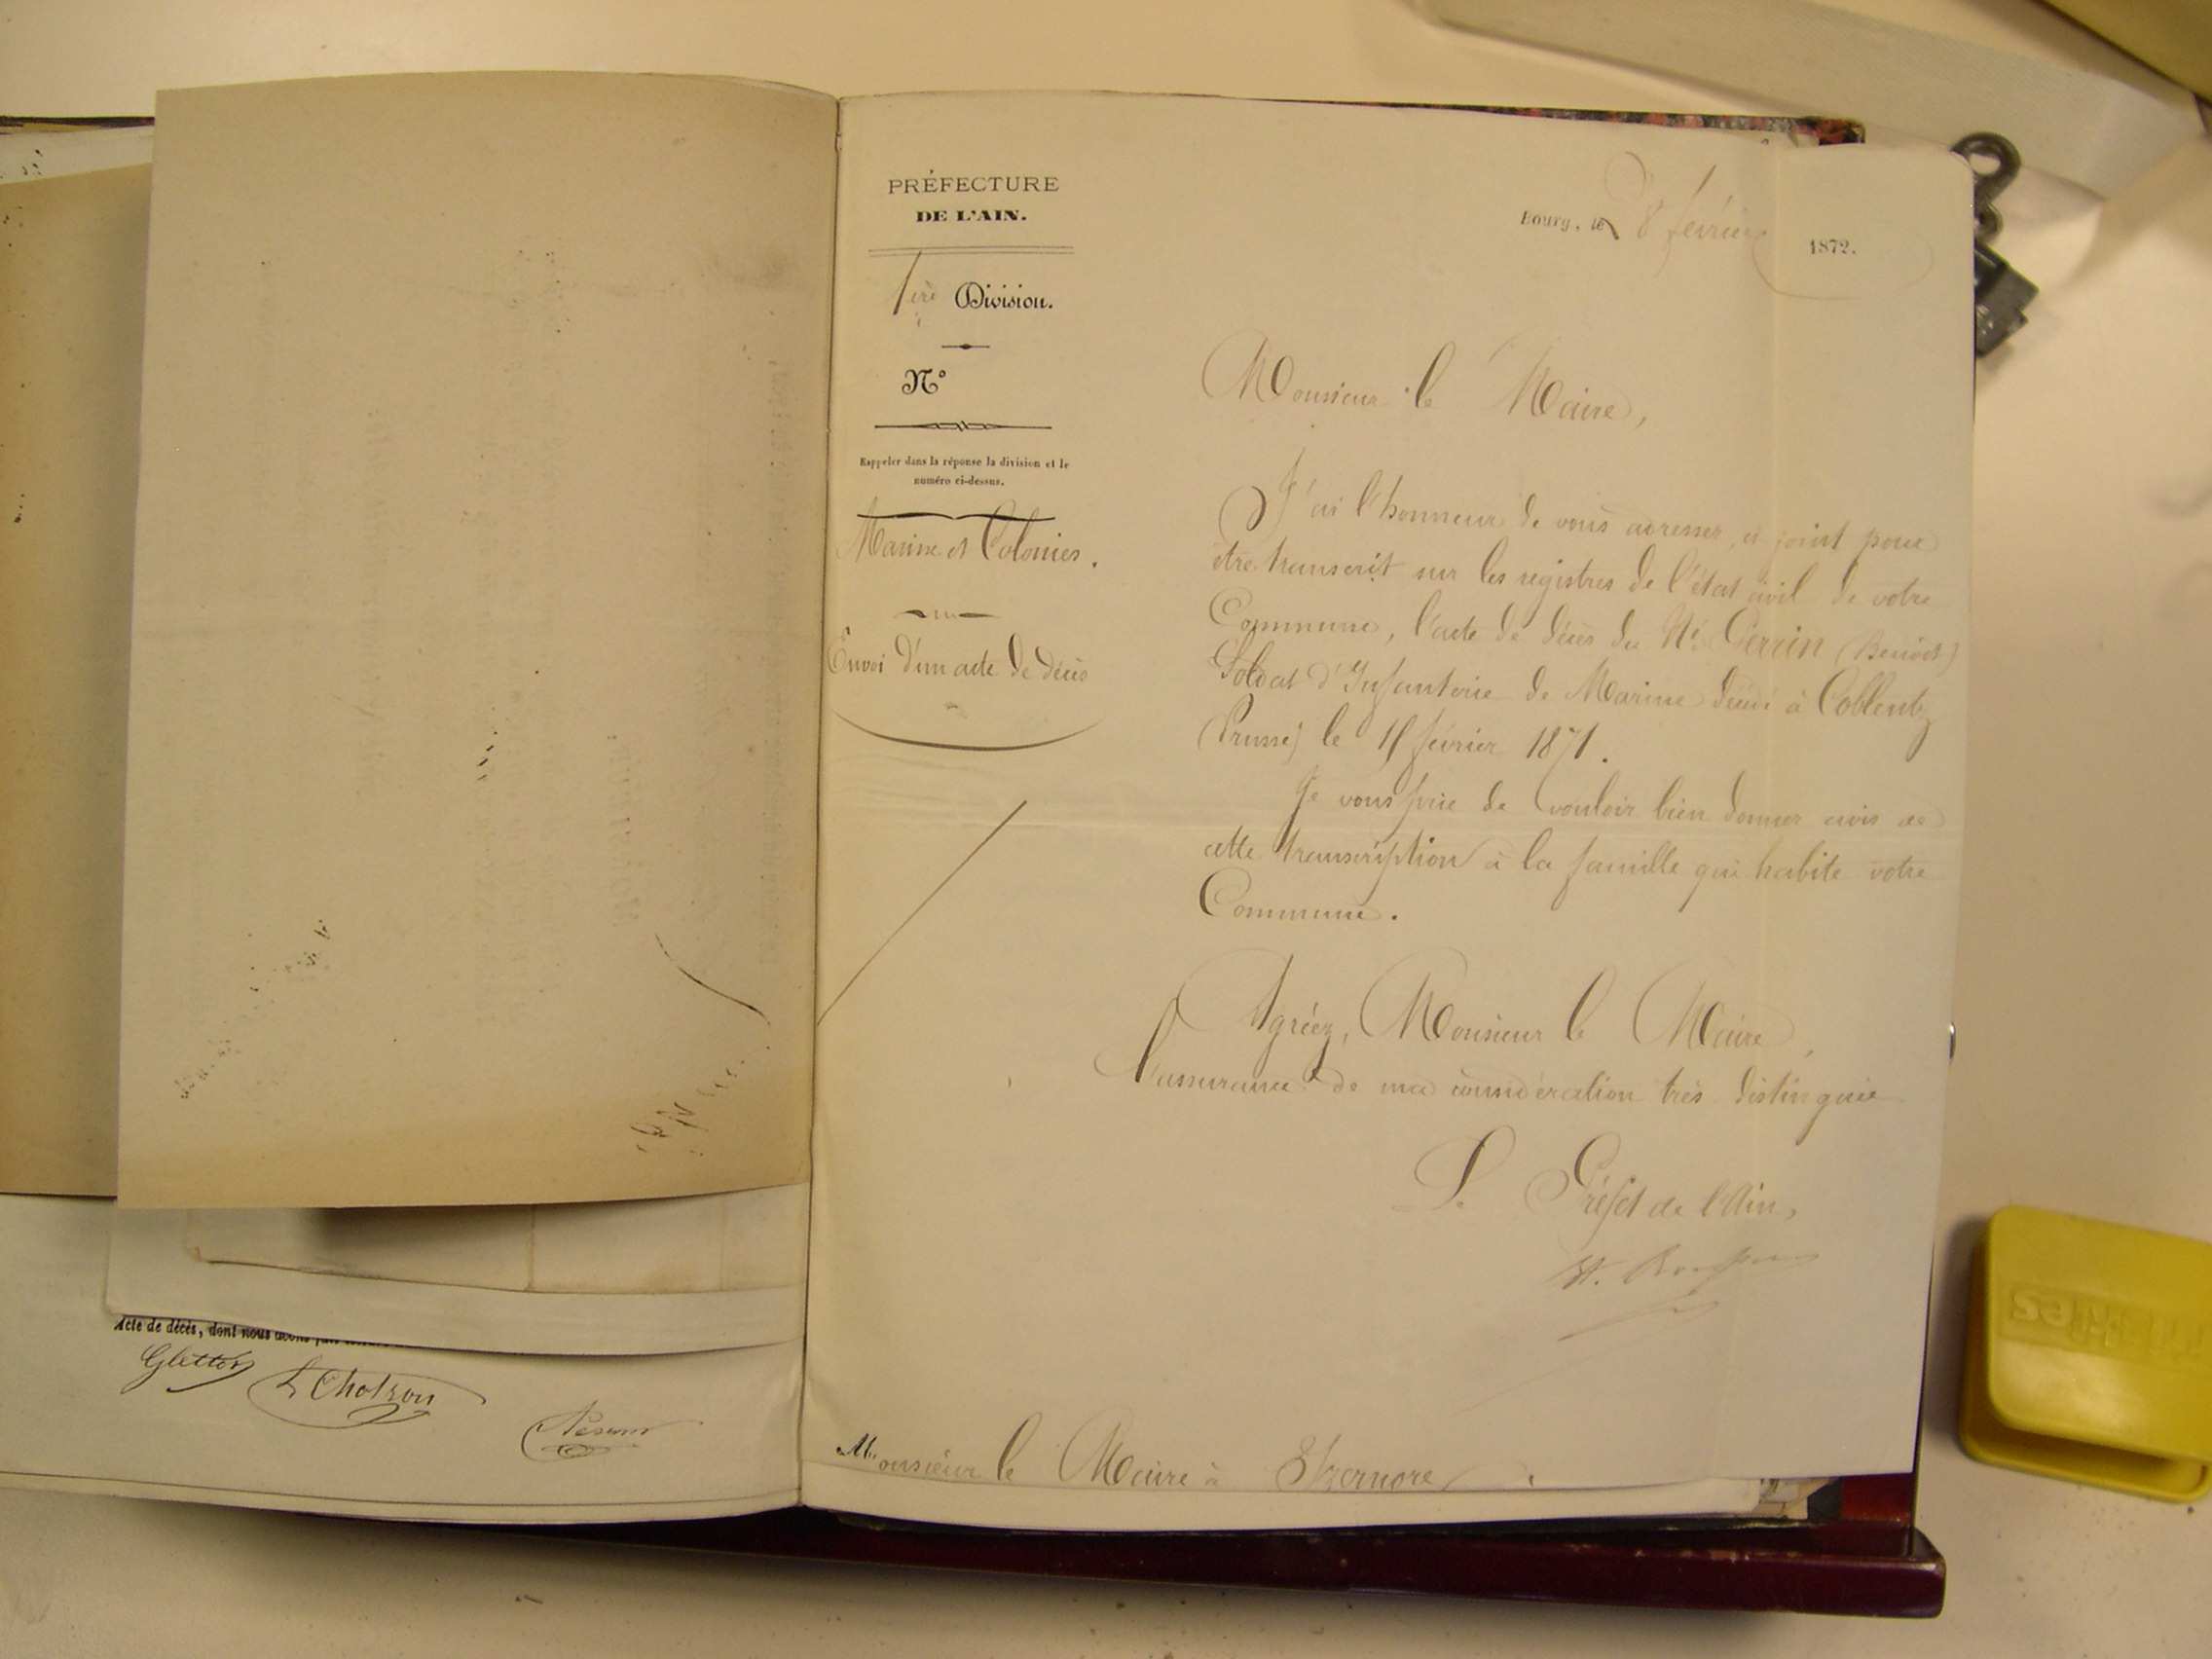 PRÉFECTURE
DE L'AIN.
1ère Division.
N°
Rappeler dans la réponse la division et le
numéro ci-dessus.
Marine et Colonies.
Envoi d'un acte de décès
Bourg, le 8 février 1872.
Monsieur le Maire,
J'ai l'honneur de vous adresser ci joint pour
être transcrit sur les registres de l'état civil de votre
Commune, l'acte de décès du Né Perrin (Benoît)
Soldat d'Infanterie de Marine décédé à Coblentz
(Prusse) le 11 février 1871.
Je vous prie de vouloir bien donner avis de
cette transcription à la famille qui habite votre
Commune.
Agréez, Monsieur le Maire,
l'assurance de ma considération très distinguée
Le Préfet de l'Ain,
Monsieur le Maire à Izernore
Acte de décès, dont nous avons